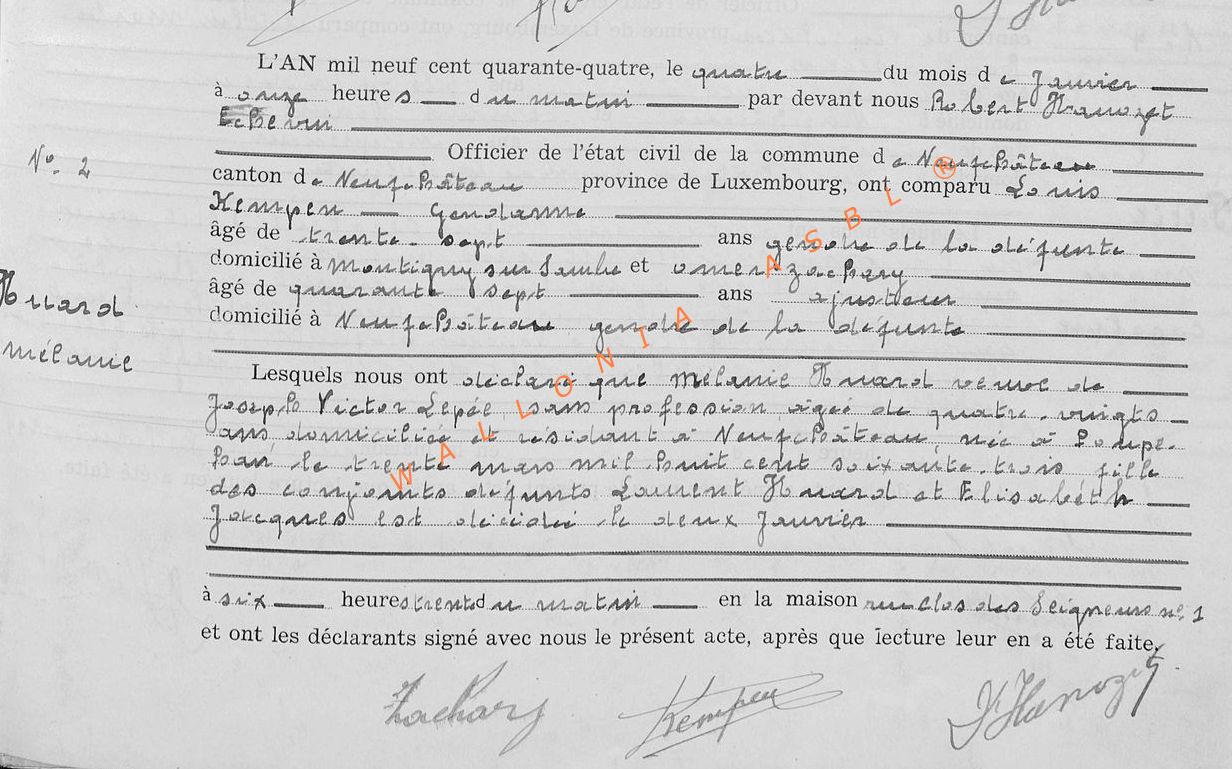 L'AN mil neuf cent quarante-quatre, le quatre du mois de Janvier
à onze heures du matin par devant nous Robert Hanozet
Echevin
Officier de l'état civil de la commune de Neufchâteau
N° 2
canton de Neufchâteau province de Luxembourg, ont comparu Louis
Kempen Gendarme
âgé de trente-sept ans gendre de la défunte
domicilié à Montigny sur Sambre et Omer Zachary
Huard
âgé de quarante sept ans ajusteur
domicilié à Neufchâteau gendre de la défunte
Mélanie
Lesquels nous ont déclaré que Mélanie Huard veuve de
Joseph Victor Lepee sans profession âgée de quatre-vingts
ans domiciliée et résidant à Neufchâteau née à Poupe-
han le trente mars mil huit cent soixante-trois fille
des conjoints défunts Laurent Huard et Elisabéth
Jacques est décédée le deux Janvier
à six heures trente du matin en la maison rue clos des Seigneurs n° 1
et ont les déclarants signé avec nous le présent acte, après que lecture leur en a été faite.
Zachary Kempen Hanozet
WALLONIA ASBL ®